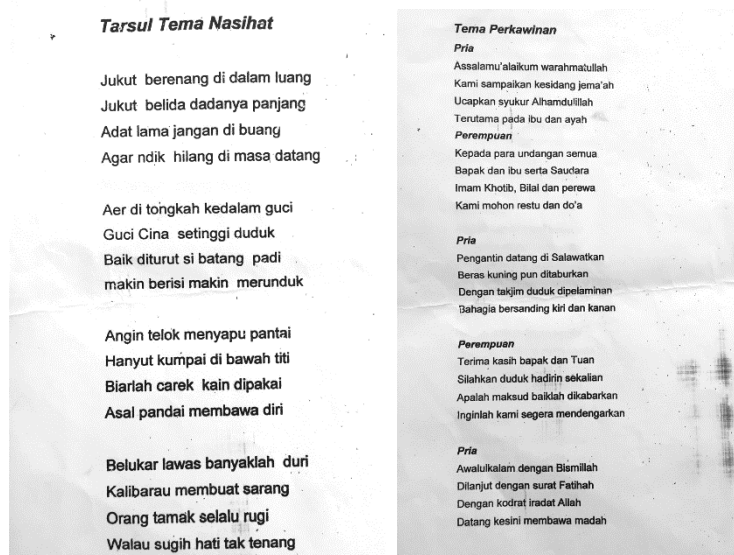 Tarsul Tema Nasihat
Jukut berenang di dalam luang
Jukut belida dadanya panjang
Adat lama jangan di buang
Agar ndik hilang di masa datang
Aer di tongkah kedalam guci
Guci Cina setinggi duduk
Baik diturut si batang padi
makin berisi makin merunduk
Angin telok menyapu pantai
Hanyut kumpai di bawah titi
Biarlah carek kain dipakai
Asal pandai membawa diri
Belukar lawas banyaklah duri
Kalibarau membuat sarang
Orang tamak selalu rugi
Walau sugih hati tak tenang
Tema Perkawinan
Pria
Assalamu'alaikum warahmatullah
Kami sampaikan kesidang jema'ah
Ucapkan syukur Alhamdulillah
Terutama pada ibu dan ayah
Perempuan
Kepada para undangan semua
Bapak dan ibu serta Saudara
Imam Khotib, Bilal dan perewa
Kami mohon restu dan do'a
Pria
Pengantin datang di Salawatkan
Beras kuning pun ditaburkan
Dengan takjim duduk dipelaminan
Bahagia bersanding kiri dan kanan
Perempuan
Terima kasih bapak dan Tuan
Silahkan duduk hadirin sekalian
Apalah maksud baiklah dikabarkan
Inginlah kami segera mendengarkan
Pria
Awalulkalam dengan Bismillah
Dilanjut dengan surat Fatihah
Dengan kodrat iradat Allah
Datang kesini membawa madah